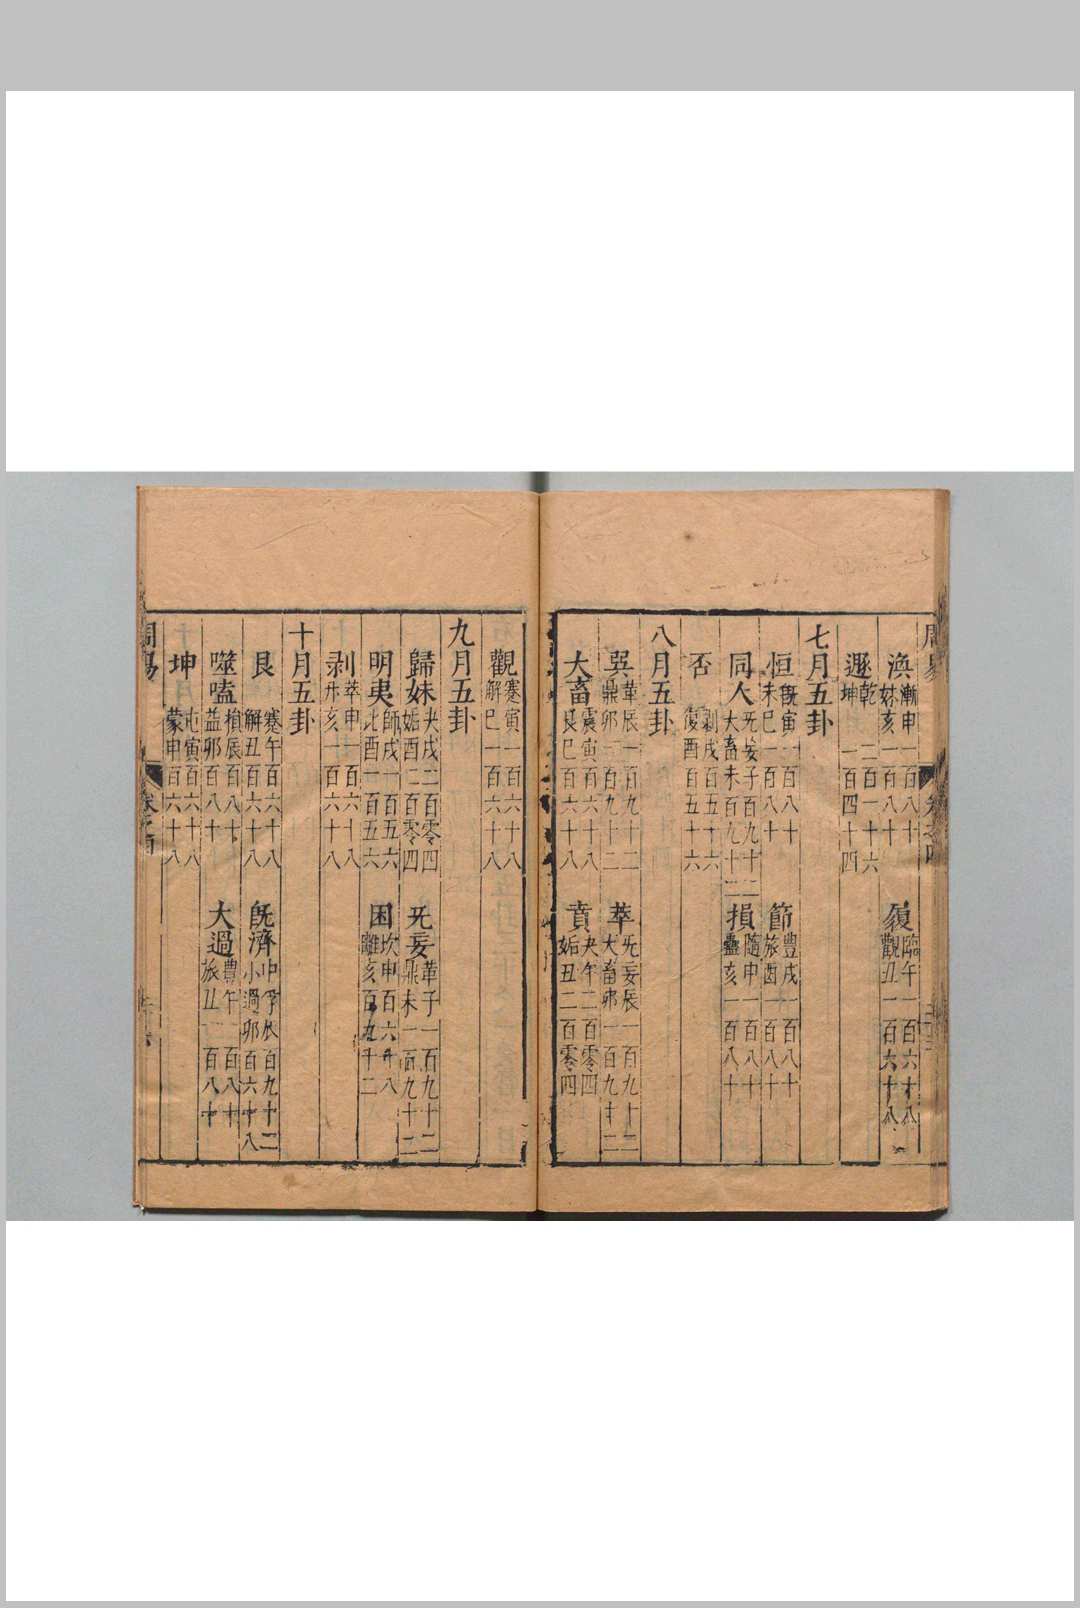 周易
渙 漸申一百八十 妹亥一百八十 履 臨午一百六十八 觀丑一百六十八
遯 乾二百一十六 坤一百四十四
七月五卦
恒 旣寅一百八十 未巳一百八十 節 豐戌一百八十 旅酉一百八十
同人 旡妄子百九十二 大畜未百九十二 損 隨申一百八十 蠱亥一百八十
否 剝戌百五十六 復酉百五十六
八月五卦
巽 革辰一百九十二 鼎卯一百九十二 萃 旡妄辰一百九十二 大畜卯一百九十二
大畜 震寅百六十八 艮巳百六十八 賁 夬午二百零四 姤丑二百零四
觀 蹇寅一百六十八 解巳一百六十八
九月五卦
歸妹 夬戌二百零四 姤酉二百零四 旡妄 革子一百九十二 鼎未一百九十二
明夷 師戌一百五六 比酉一百五六 困 坎申百六十八 離亥百九十二
剥 萃申一百六十八 升亥一百六十八
十月五卦
艮 蹇午百六十八 解丑百六十八 旣濟 中孚辰百九十二 小過卯百六十八
噬嗑 損辰百八十 益卯百八十 大過 豐午一百八十 旅丑一百八十
坤 屯寅百六十八 蒙申百六十八
周易 卷之四